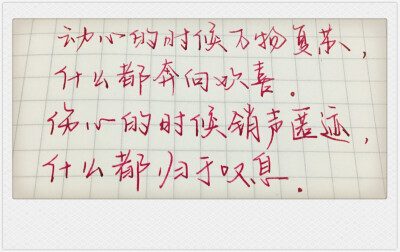 动心的时候万物复苏，
什么都奔向欢喜。
伤心的时候销声匿迹，
什么都归于叹息.